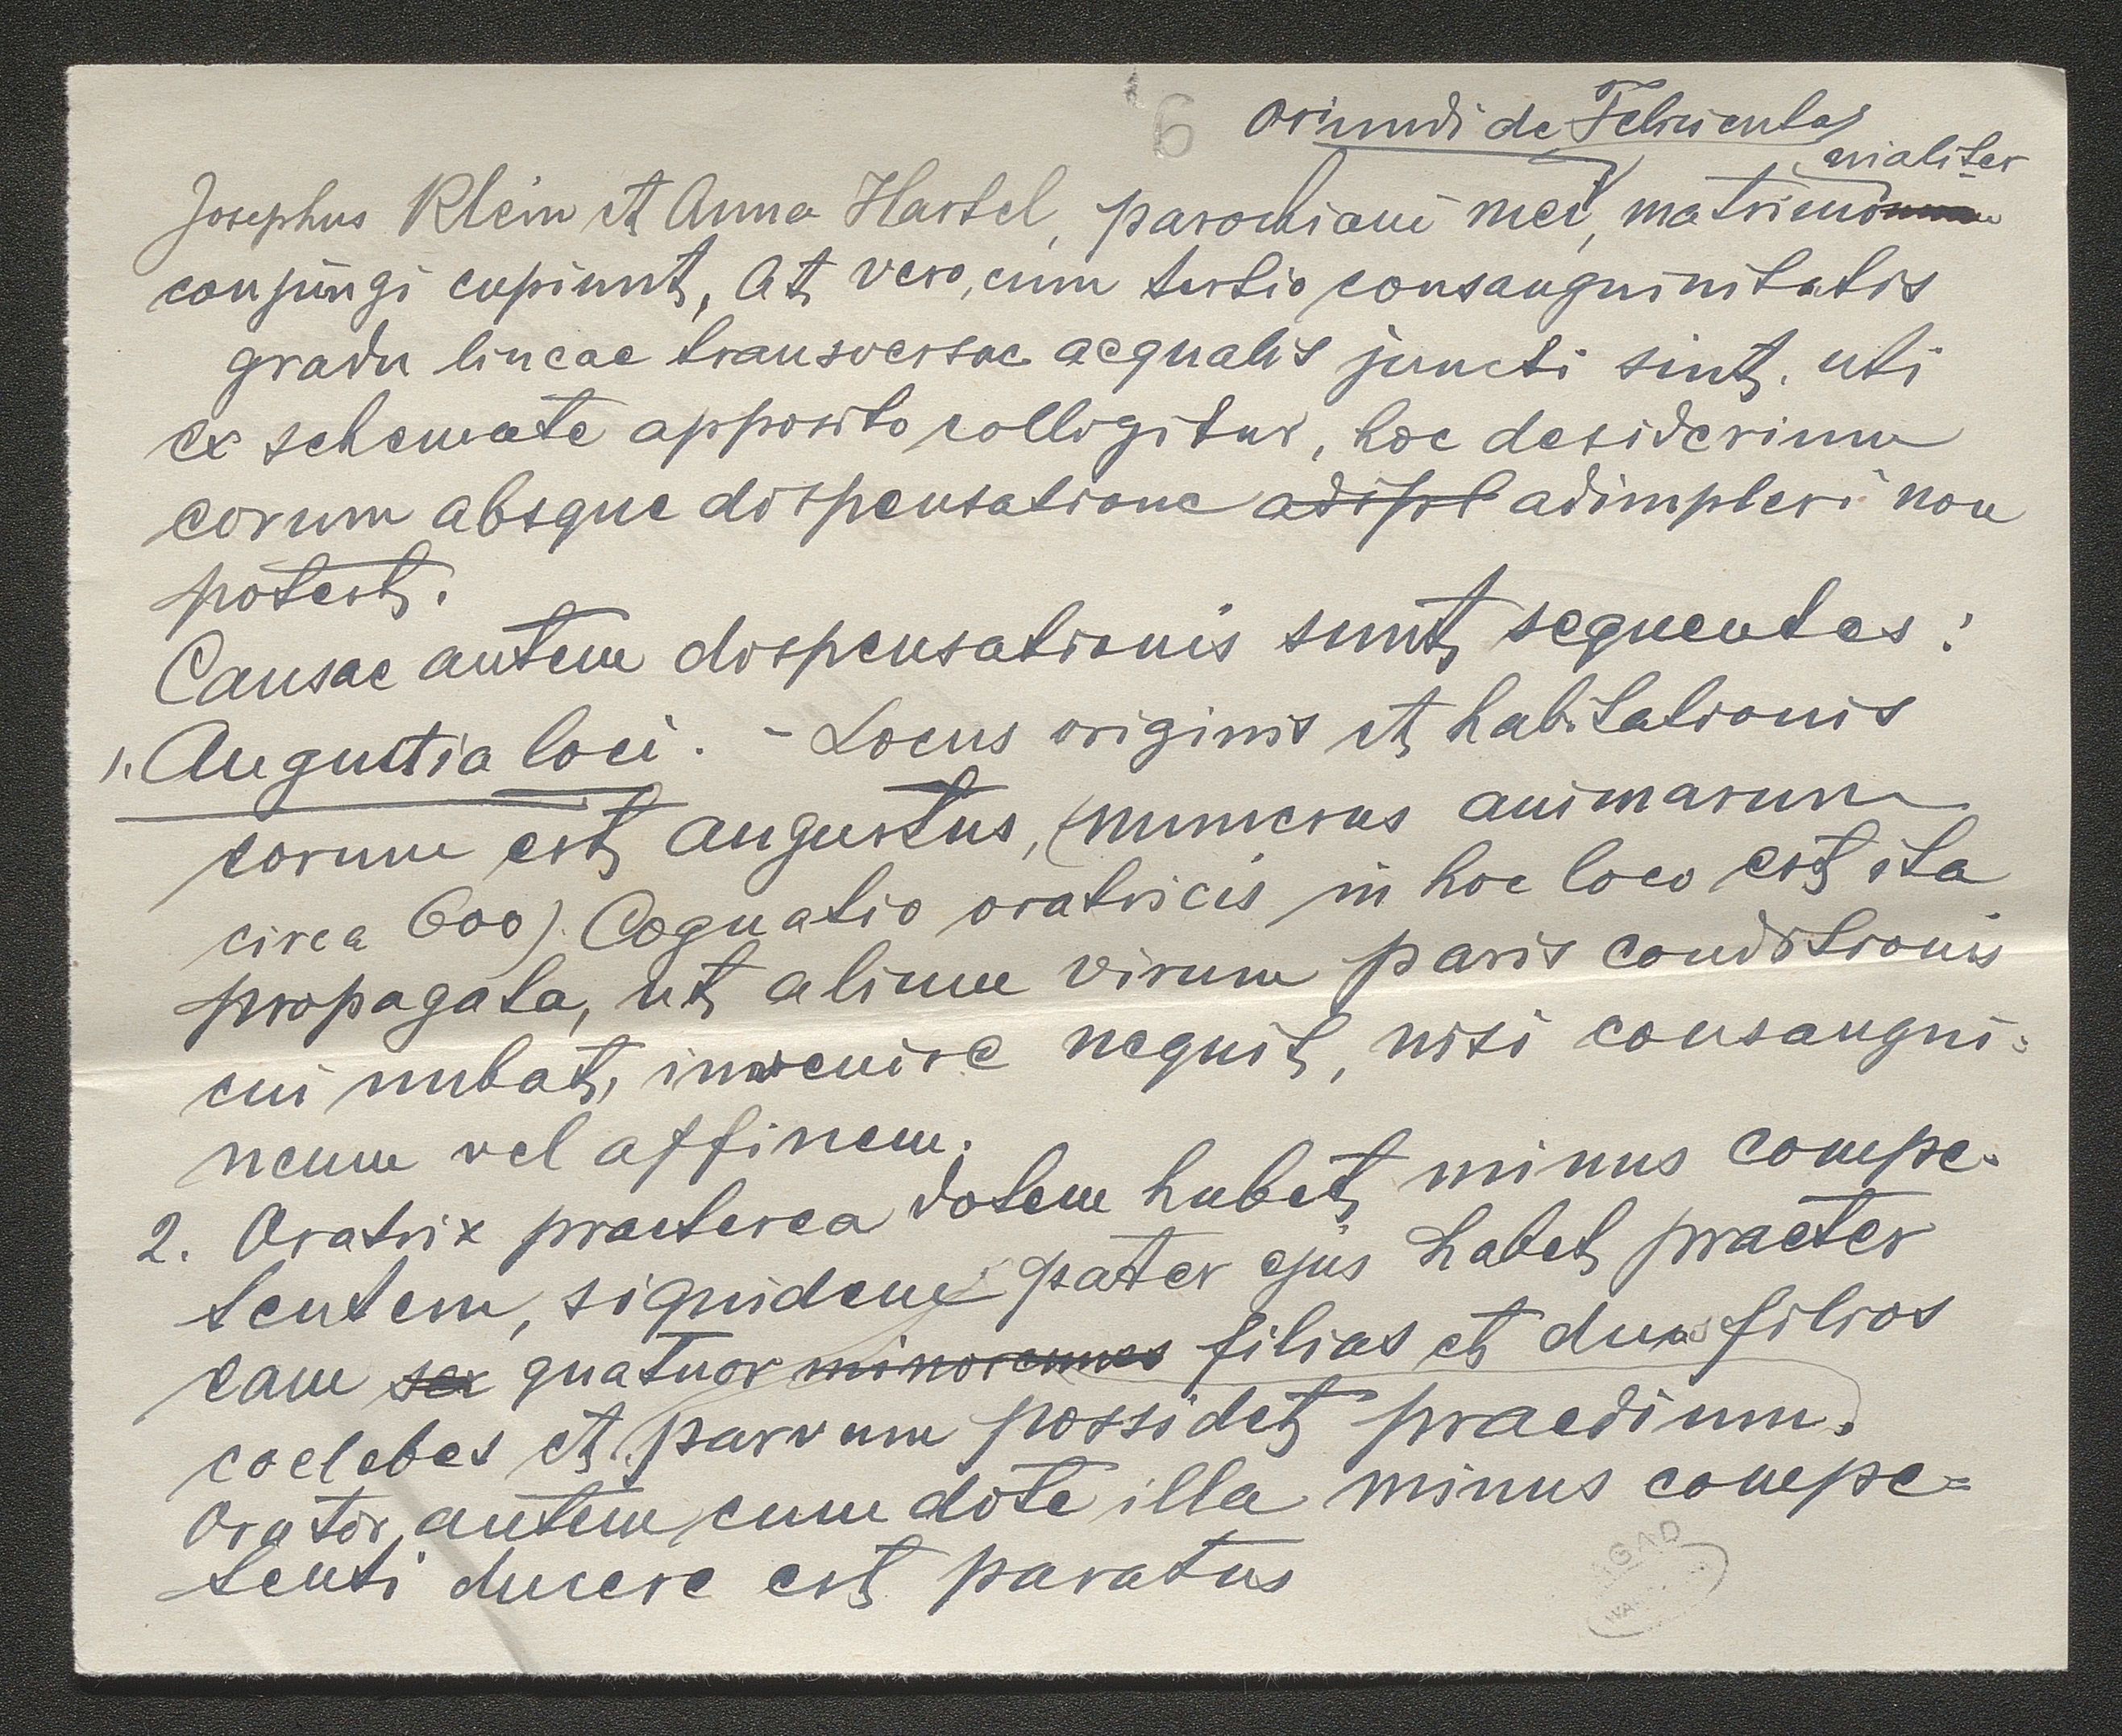 6 oriundi de Felriculas
nialiter
Josephus Klein et Anna Hartel, parochiani mei, matrimo
conjungi cupiunt, At vero, cum tertio consanguinitatis
gradu lineae transversae aequalis juncti sint. uti
ex schemate apposito colligitur, hoc desiderium
eorum absque dispensatione adipl adimpleri non
potest.
Causae autem dispensationis sunt sequentes:
1. Angustia loci. - Locus originis et habitationis
eorum est angustus, (numerus animarum
circa 600). Cognatio oratricis in hoc loco est ita
propagata, ut alium virum paris conditionis
cui nubat, invenire nequit, nisi consangui=
neum vel affinem.
2. Oratrix praeterea dotem habet minus compe=
tentem, siquidem pater ejus habet praeter
eam sex quatuor minorennes filias et duos filios
coelebes et parvum possidet praedium.
Orator autem cum dote illa minus compe=
tenti ducere est paratus